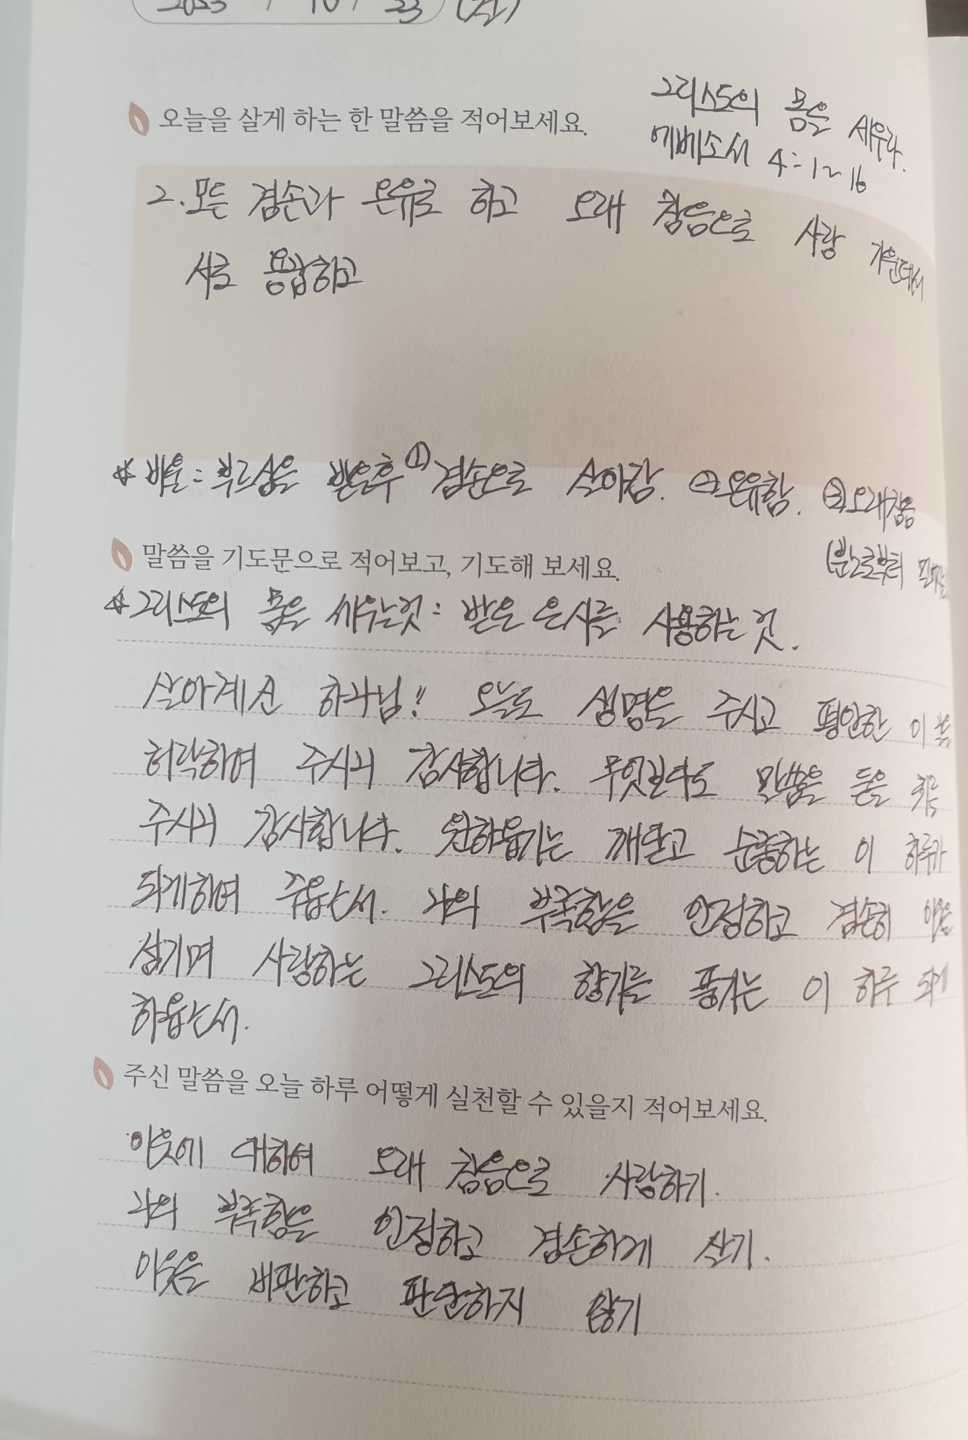 2023 / 10 / 23 (월)
그리스도의 몸을 세우라.
오늘을 살게 하는 한 말씀을 적어보세요.
에베소서 4:1~16
2. 모든 겸손과 온유로 하고 오래 참음으로 사랑 가운데서
서로 용납하고
* 바울: 부르심을 받은후 ① 겸손으로 살아감. ②온유함. ③오래참음
말씀을 기도문으로 적어보고, 기도해 보세요.
(분노로부터
* 그리스도의 몸을 세우는것: 받은 은사를 사용하는 것.
살아계신 하나님!! 오늘도 생명을 주시고 평안한 이
허락하여 주시니 감사합니다. 무엇보다도 말씀을 듣을
주시니 감사합니다. 원하옵기는 깨닫고 순종하는 이 하루가
되게하여 주옵소서. 나의 부족함을 인정하고 겸손히 이웃을
섬기며 사랑하는 그리스도의 향기를 풍기는 이 하루 되게
하옵소서.
주신 말씀을 오늘 하루 어떻게 실천할 수 있을지 적어보세요.
이웃에 대하여 오래 참음으로 사랑하기.
나의 부족함을 인정하고 겸손하게 살기.
이웃을 비판하고 판단하지 않기